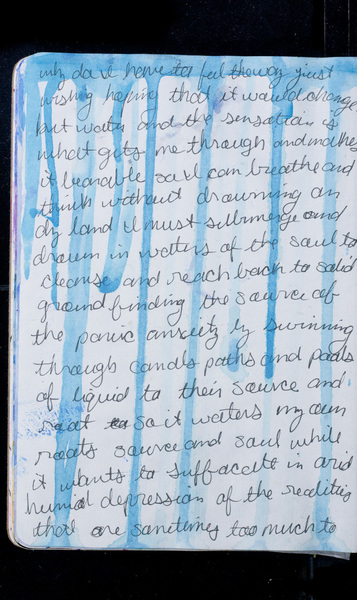 why do I have to feel the way I just
wishing hoping that it would change
but water and the sensation is
what gets me through and makes
it bearable so I can breathe and
think without drowning on
dry land I must submerge and
drown in waters of the soul to
cleanse and reach back to solid
ground finding the source of
the panic anxiety by swimming
through canals paths and pools
of liquid to their source and
root so it waters my own
roots source and soul while
it wants to suffacate in arid
humid depression of the realities
that are sometimes too much to